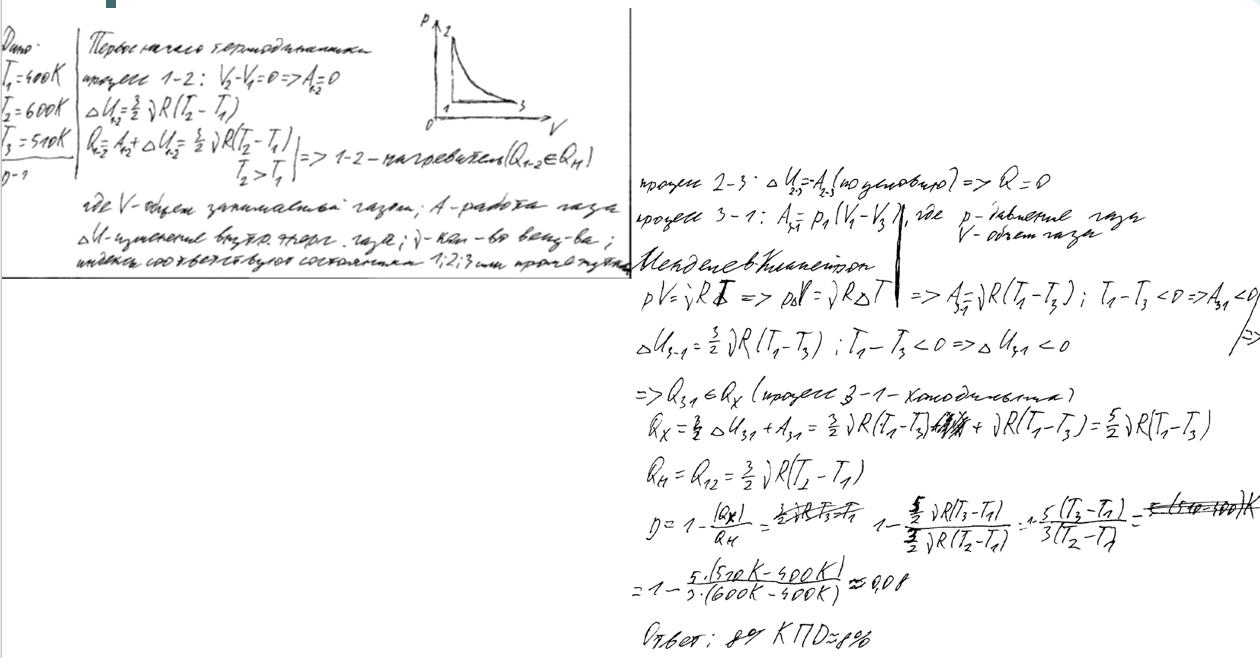 Дано:
T₁=400K
T₂=600K
T₃=510K
η-?
Первое начало термодинамики
процесс 1-2: V₂-V₁=0 => A₁₋₂=0
ΔU₁₋₂=3/2 νR(T₂-T₁)
Q₁₋₂=A₁₋₂+ΔU₁₋₂=3/2 νR(T₂-T₁)
T₂>T₁ | => 1-2 – нагреватель (Q₁₋₂∈Qн)
p
2
1
3
0
V
где V-объем занимаемый газом; A-работа газа
ΔU-изменение внутр. энерг. газа; ν-кол-во вещ-ва;
индексы соответствуют состояниям 1;2;3 или
процесс 2-3: ΔU₂₋₃=-A₂₋₃ (по условию) => Q=0
процесс 3-1: A₃₋₁=p₁(V₁-V₃), где p-давление газа
V-объем газа
Менделеев Клапейрон
pV=νRT => pΔV=νRΔT | => A₃₋₁=νR(T₁-T₃); T₁-T₃<0 => A₃₁<0
ΔU₃₋₁=3/2 νR(T₁-T₃); T₁-T₃<0 => ΔU₃₁<0 | =>
=> Q₃₁∈Qx (процесс 3-1-холодильника)
Qx = ΔU₃₁+A₃₁ = 3/2 νR(T₁-T₃) + νR(T₁-T₃) = 5/2 νR(T₁-T₃)
Qн=Q₁₂=3/2 νR(T₂-T₁)
η=1-|Qx|/Qн = 1-(5/2 νR(T₃-T₁))/(3/2 νR(T₂-T₁)) = 1-5(T₃-T₁)/3(T₂-T₁) =
=1-5·(510K-400K)/3·(600K-400K) ≈0,08
Ответ: КПД≈8%